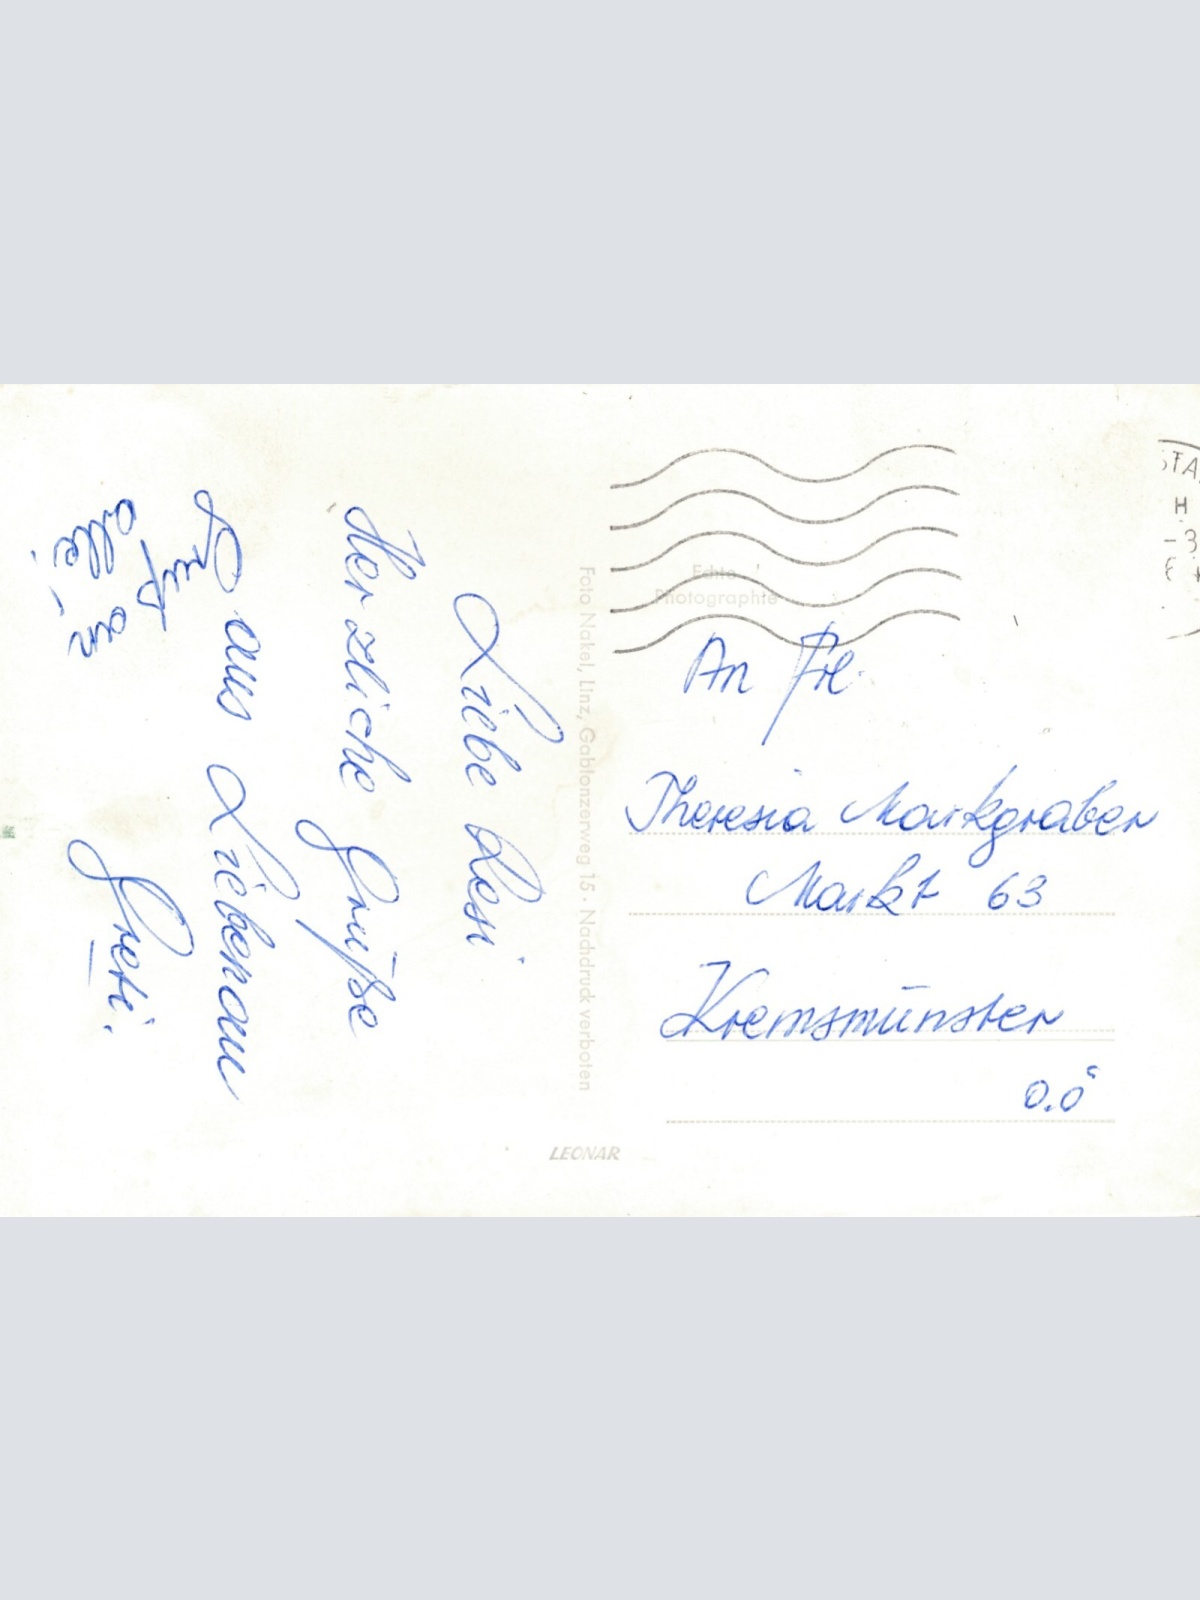 Liebe Resi
Herzliche Grüße
aus Liebenau
Greti.
Gruß an
alle!
Foto Nakel, Linz, Gablonzerweg 15 · Nachdruck verboten
Echte
Photographie
An Frl.
Theresia Markgraber
Markt 63
Kremsmünster
O.Ö
LEONAR